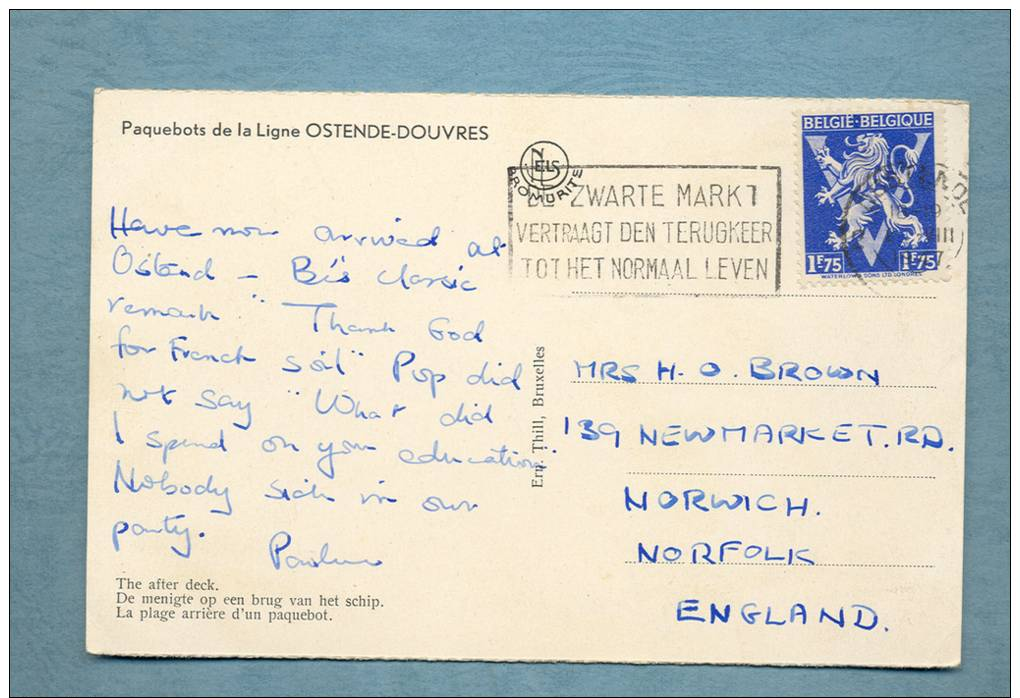 Paquebots de la Ligne OSTENDE-DOUVRES
NELS
PROMURITE
DE ZWARTE MARKT
VERTRAAGT DEN TERUGKEER
TOT HET NORMAAL LEVEN
BELGIË-BELGIQUE
1F75 1F75
WATERLOW & SONS LTD. LONDRES
Have now arrived at
Ostend – Bi's classic
remark "Thank God
for French soil" Pop did
not say "What did
I spend on your education"
Nobody sick in our
party.
Pauline
Ern. Thill, Bruxelles
MRS H. O. BROWN
139 NEWMARKET. RD.
NORWICH.
NORFOLK
ENGLAND.
The after deck.
De menigte op een brug van het schip.
La plage arrière d'un paquebot.